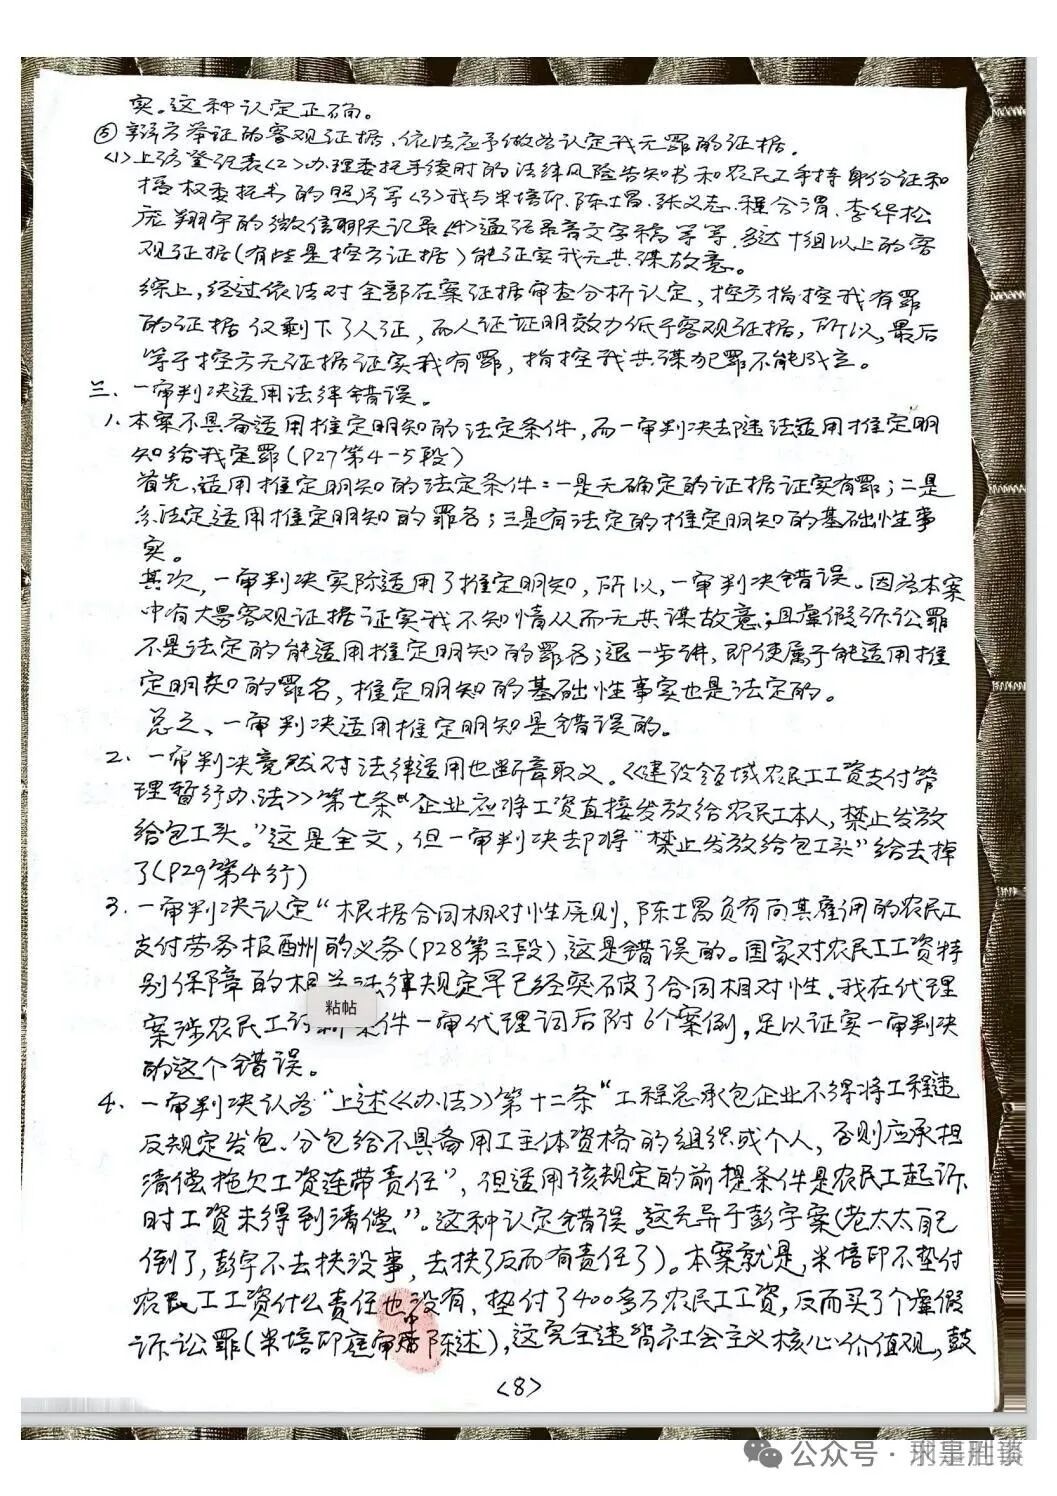 实。这种认定正确。
⑤辩方举证的客观证据，依法应予做为认定我无罪的证据。
<1>上访登记表<2>办理委托手续时的法律风险告知书和农民工手持身份证和
授权委托书的照片等<3>我与米培印、陈士昌、张义志、程会渭、李华松
庞翔宇的微信聊天记录<4>通话录音文字稿等等，多达十组以上的客
观证据(有些是控方证据)能证实我无共谋故意。
综上，经过依法对全部在案证据审查分析认定，控方指控我有罪
的证据仅剩下了人证，而人证证明效力低于客观证据，所以，最后
等于控方无证据证实我有罪，指控我共谋犯罪不能成立。
三、一审判决适用法律错误。
1、本案不具备适用推定明知的法定条件，而一审判决却违法适用推定明
知给我定罪(P27第4-5段)
首先，适用推定明知的法定条件：一是无确定的证据证实有罪；二是
系法定适用推定明知的罪名；三是有法定的推定明知的基础性事
实。
其次，一审判决实际适用了推定明知，所以，一审判决错误。因为本案
中有大量客观证据证实我不知情从而无共谋故意；且虚假诉讼罪
不是法定的能适用推定明知的罪名；退一步讲，即使属于能适用推
定明知的罪名，推定明知的基础性事实也是法定的。
总之、一审判决适用推定明知是错误的。
2、一审判决竟然对法律适用也断章取义。《建设领域农民工工资支付管
理暂行办法》第七条“企业应将工资直接发放给农民工本人，禁止发放
给包工头。”这是全文，但一审判决却将“禁止发放给包工头”给去掉
了(P29第4行)
3、一审判决认定“根据合同相对性原则，陈士昌负有向其雇佣的农民工
支付劳务报酬的义务(P28第三段)，这是错误的。国家对农民工工资特
别保障的相关法律规定早已经突破了合同相对性。我在代理
粘帖
案涉农民工讨薪案件一审代理词后附6个案例，足以证实一审判决
的这个错误。
4、一审判决认为“上述《办法》第十二条“工程总承包企业不得将工程违
反规定发包、分包给不具备用工主体资格的组织或个人，否则应承担
清偿拖欠工资连带责任”，但适用该规定的前提条件是农民工起诉
时工资未得到清偿”。这种认定错误。这无异于彭宇案(老太太自己
倒了，彭宇不去扶没事，去扶了反而有责任了)。本案就是，米培印不垫付
农民工工资什么责任也没有，垫付了400多万农民工工资，反而买了个虚假
诉讼罪(米培印庭审中陈述)，这完全违背社会主义核心价值观，鼓
<8>
公众号·刑事胜谈